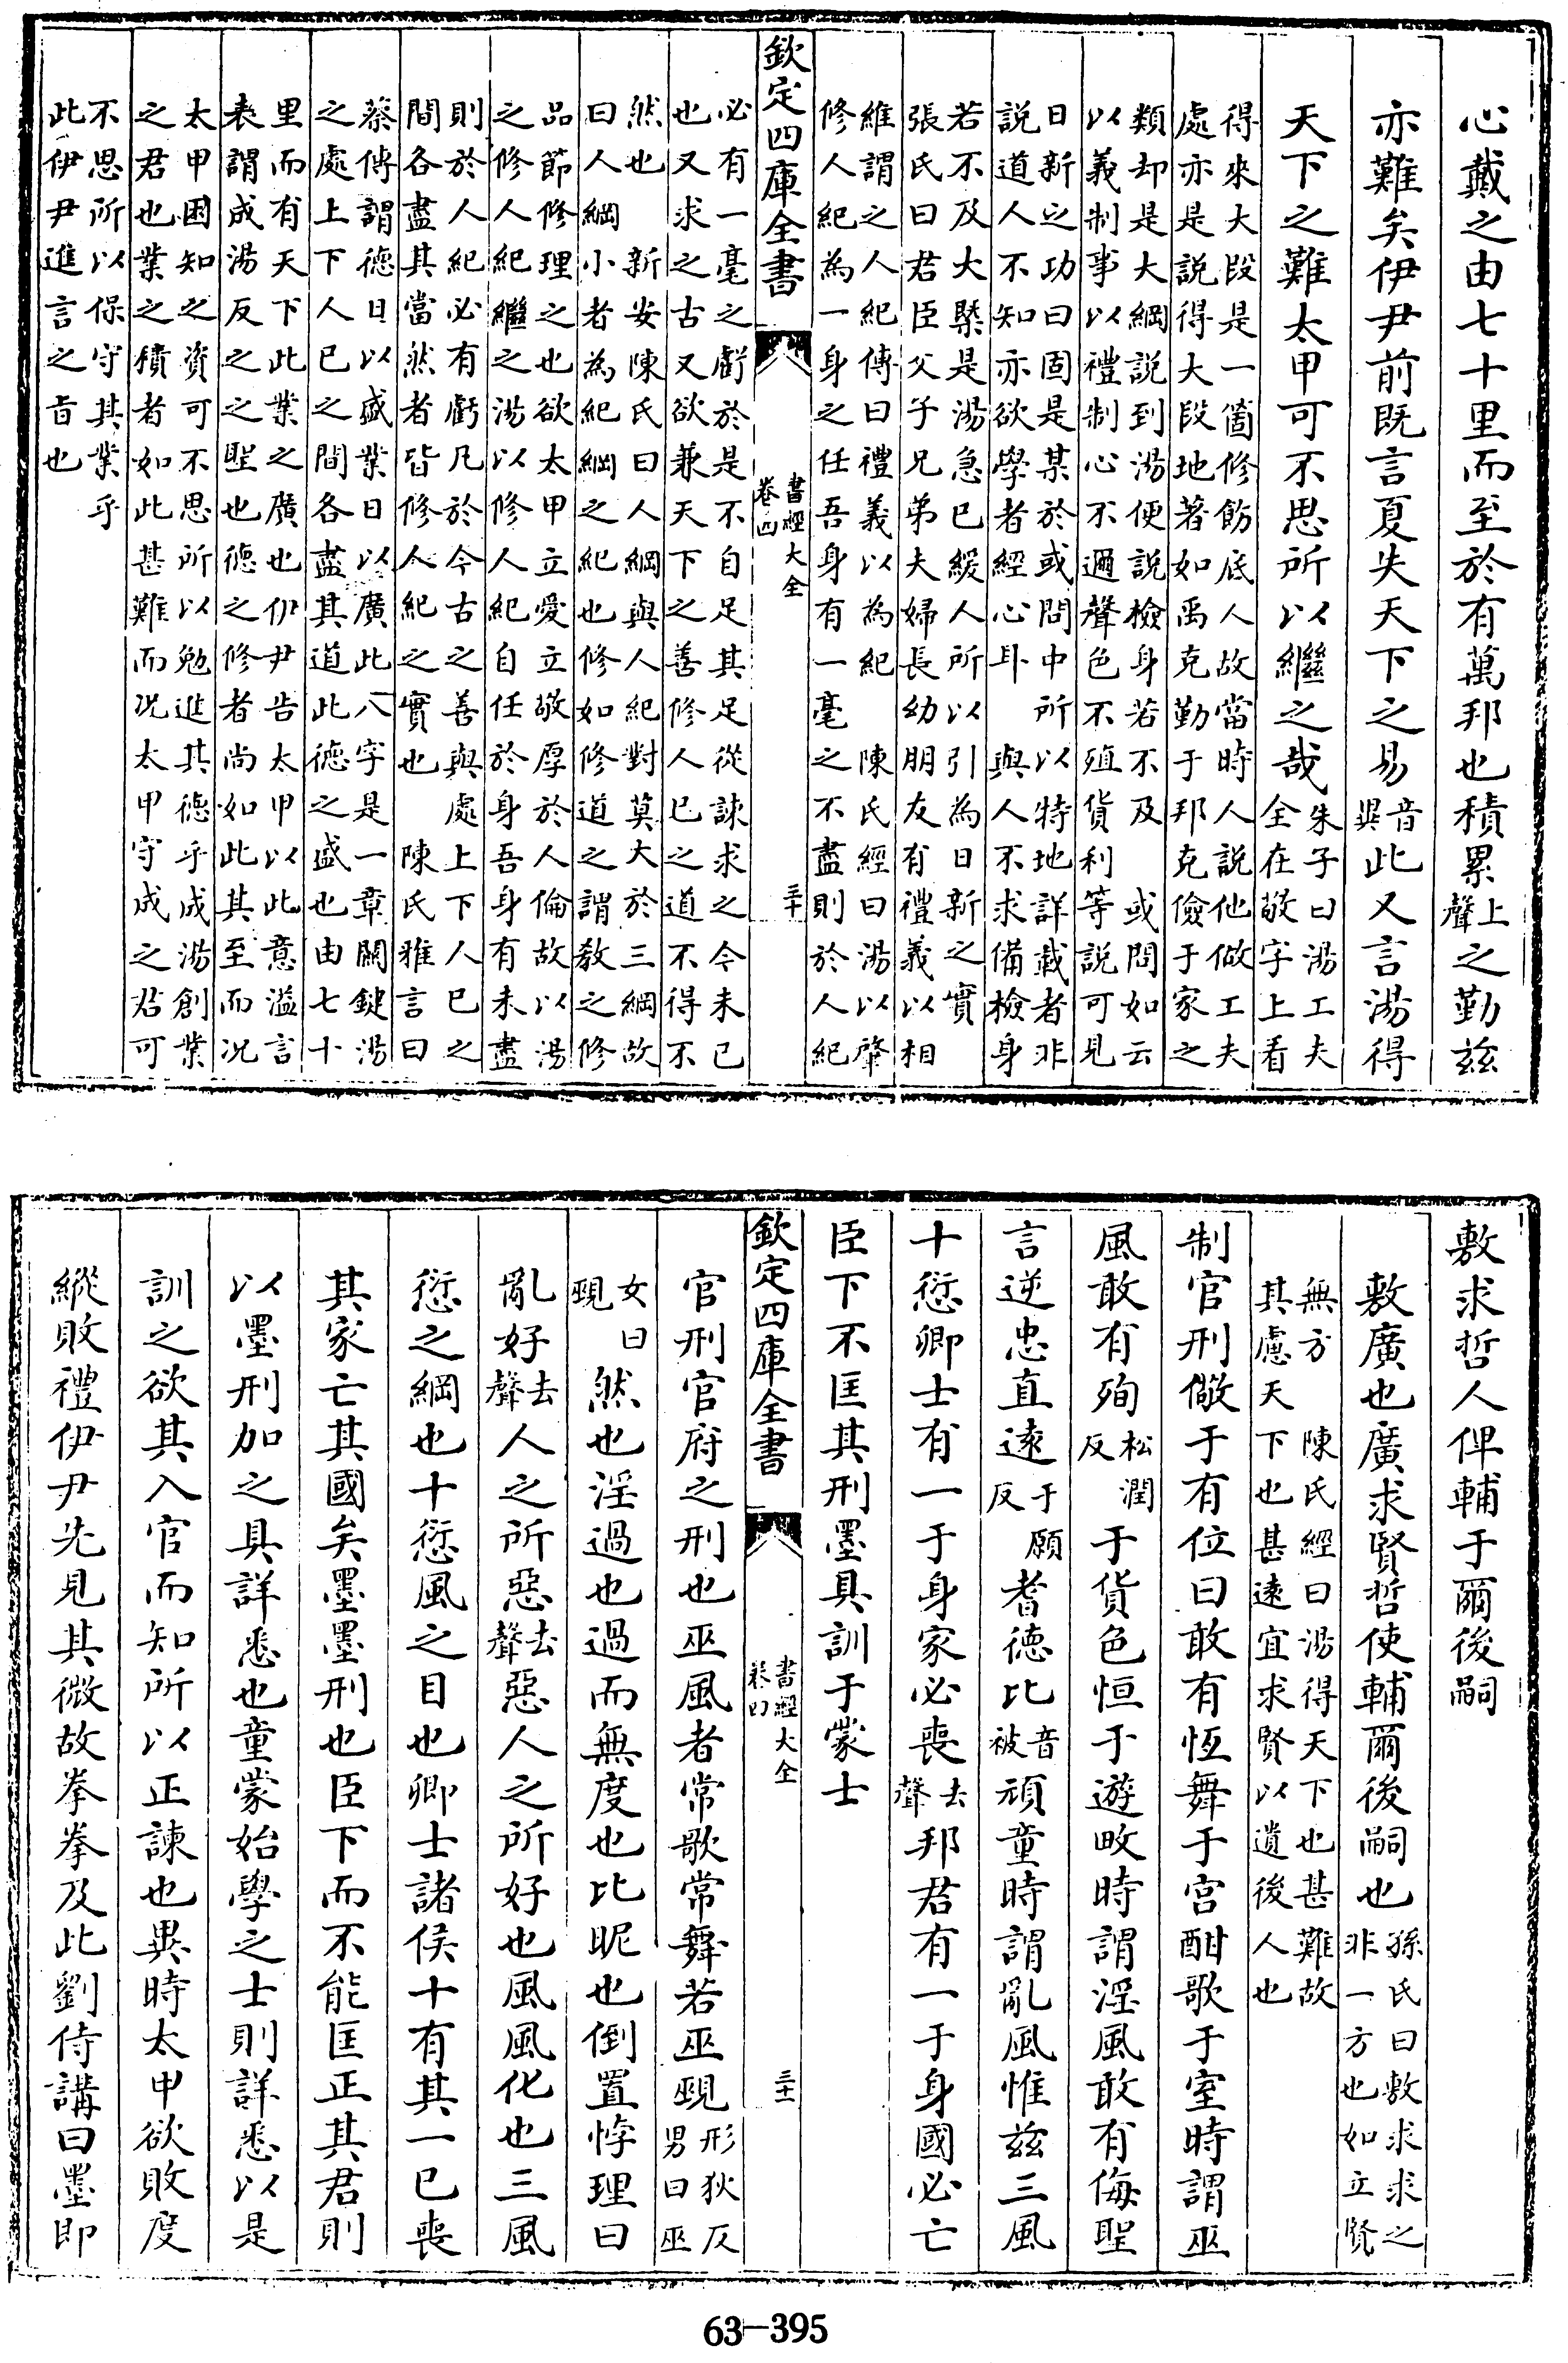 心戴之由七十里而至於有萬邦也積累上聲之勤兹
亦難矣伊尹前既言夏失天下之易音異此又言湯得
天下之難太甲可不思所以繼之哉朱子曰湯工夫
全在敬字上看
得來大段是一箇修飭底人故當時人說他做工夫
處亦是說得大段地著如禹克勤于邦克儉于家之
類却是大綱說到湯便說檢身若不及 或問如云
以義制事以禮制心不邇聲色不殖貨利等說可見
日新之功曰固是某於或問中所以特地詳載者非
說道人不知亦欲學者經心耳 與人不求備檢身
若不及大槩是湯急已緩人所以引為日新之實
張氏曰君臣父子兄弟夫婦長幼朋友有禮義以相
維謂之人紀傳曰禮義以為紀 陳氏經曰湯以肇
修人紀為一身之任吾身有一毫之不盡則於人紀
欽定四庫全書
書經大全
卷四
三十
必有一毫之虧於是不自足其足從諫求之今未已
也又求之古又欲兼天下之善修人已之道不得不
然也 新安陳氏曰人綱與人紀對莫大於三綱故
曰人綱小者為紀綱之紀也修如修道之謂教之修
品節修理之也欲太甲立愛立敬厚於人倫故以湯
之修人紀繼之湯以修人紀自任於身吾身有未盡
則於人紀必有虧凡於今古之善與處上下人已之
間各盡其當然者皆修人紀之實也 陳氏雅言曰
蔡傳謂德日以盛業日以廣此八字是一章關鍵湯
之處上下人已之間各盡其道此德之盛也由七十
里而有天下此業之廣也伊尹告太甲以此意溢言
表謂成湯反之之聖也德之修者尚如此其至而况
太甲困知之資可不思所以勉進其德乎成湯創業
之君也業之積者如此甚難而况太甲守成之君可
不思所以保守其業乎
此伊尹進言之旨也
敷求哲人俾輔于爾後嗣
敷廣也廣求賢哲使輔爾後嗣也孫氏曰敷求求之
非一方也如立賢
無方 陳氏經曰湯得天下也甚難故
其慮天下也甚遠宜求賢以遺後人也
制官刑儆于有位曰敢有恆舞于宮酣歌于室時謂巫
風敢有殉松潤反于貨色恒于遊畋時謂淫風敢有侮聖
言逆忠直遠于願反耆德比音被頑童時謂亂風惟兹三風
十愆卿士有一于身家必喪去聲邦君有一于身國必亡
臣下不匡其刑墨具訓于蒙士
欽定四庫全書
書經大全
卷四
三十一
官刑官府之刑也巫風者常歌常舞若巫覡形狄反
男曰巫
女曰
覡然也淫過也過而無度也比昵也倒置悖理曰
亂好去聲人之所惡去聲惡人之所好也風風化也三風
愆之綱也十愆風之目也卿士諸侯十有其一已喪
其家亡其國矣墨墨刑也臣下而不能匡正其君則
以墨刑加之具詳悉也童蒙始學之士則詳悉以是
訓之欲其入官而知所以正諫也異時太甲欲敗度
縱敗禮伊尹先見其微故拳拳及此劉侍講曰墨即
63-395